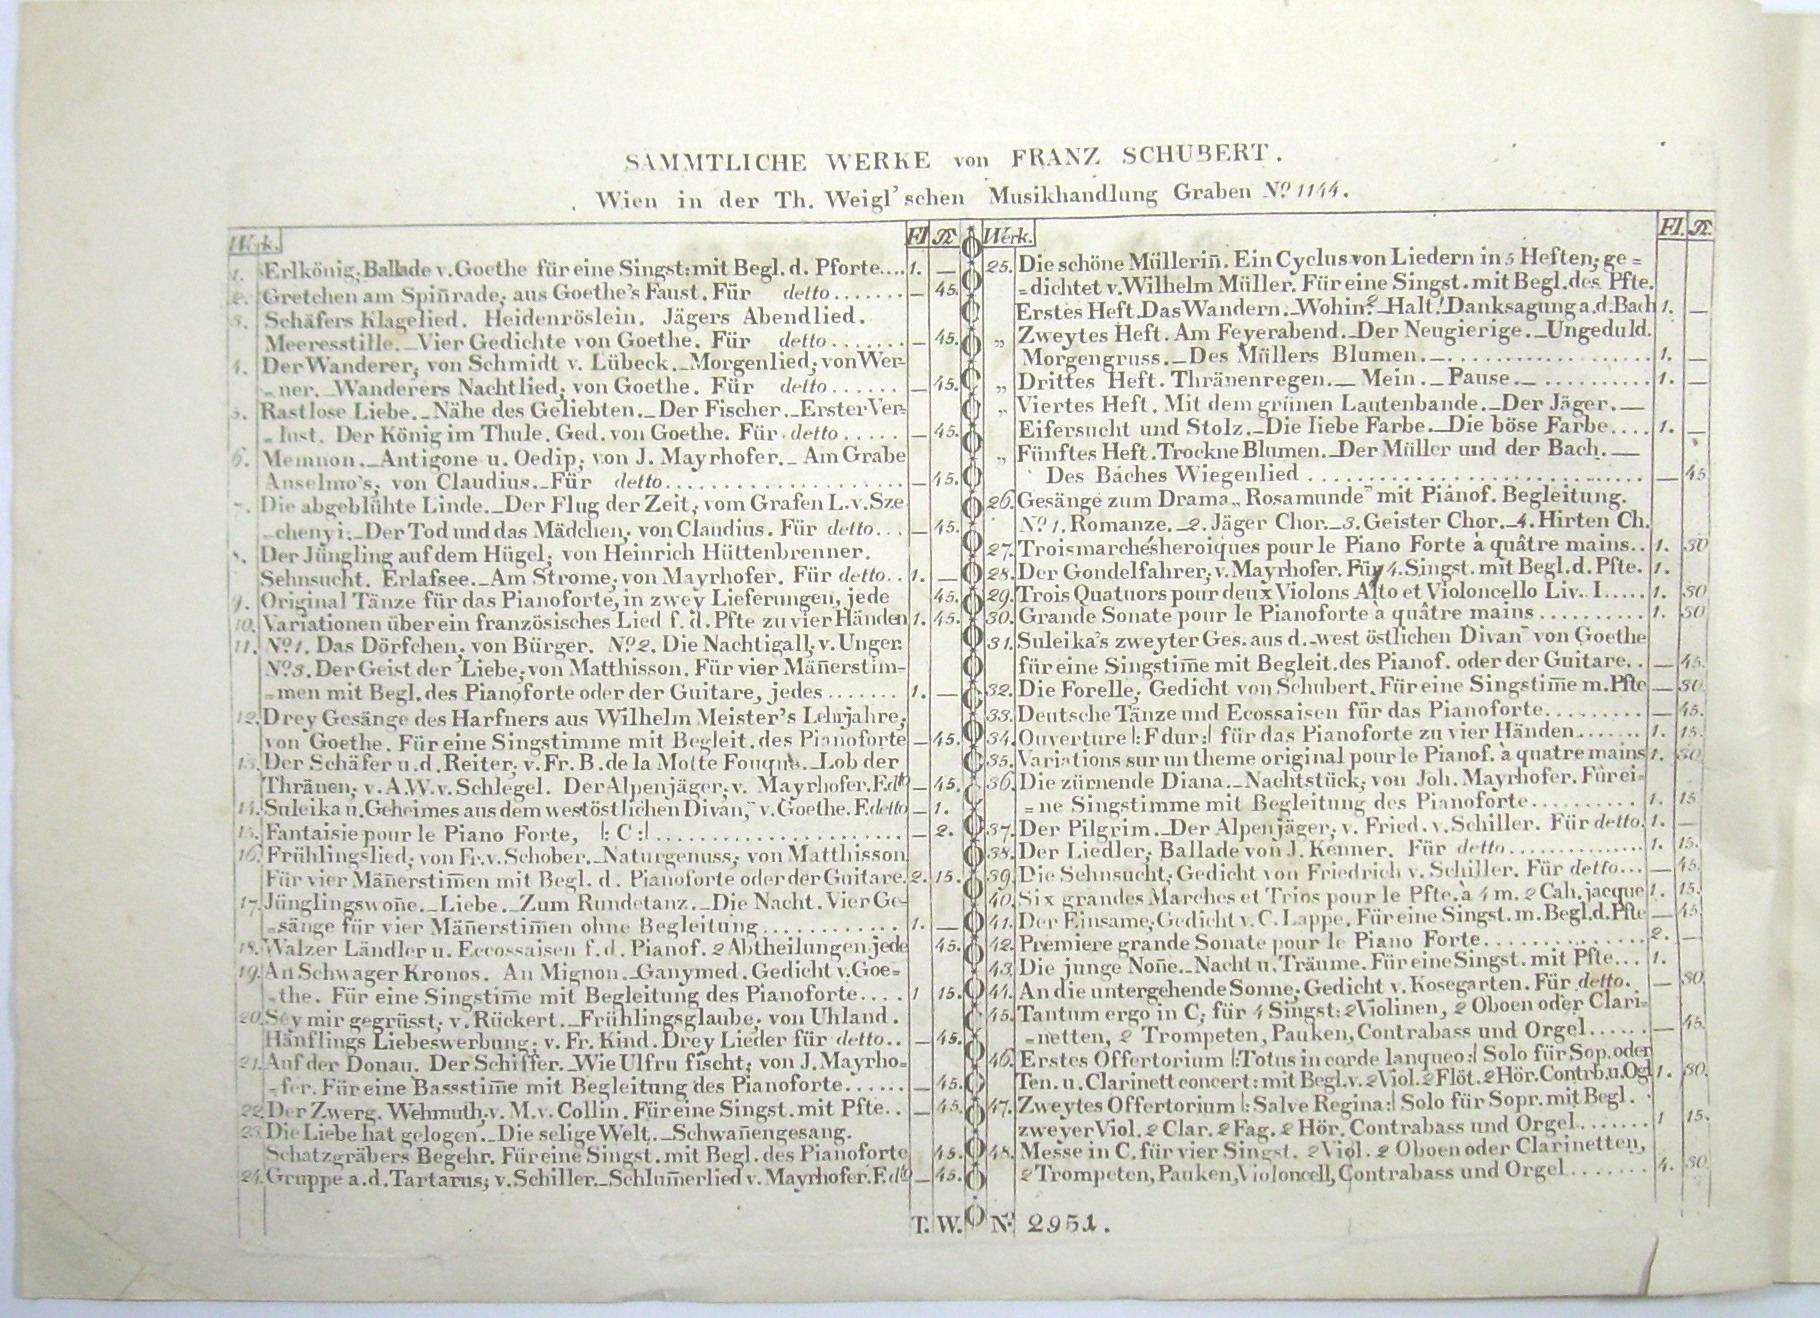 SAMMTLICHE WERKE von FRANZ SCHUBERT.
Wien in der Th. Weigl'schen Musikhandlung Graben No. 1144.
Werk. Fl X
1. Erlkönig; Ballade v. Goethe für eine Singst: mit Begl. d. Pforte.... 1. —
2. Gretchen am Spin̄rade; aus Goethe's Faust. Für detto....... — 45.
3. Schäfers Klagelied. Heidenröslein. Jägers Abendlied.
Meeresstille._Vier Gedichte von Goethe. Für detto....... — 45.
4. Der Wanderer; von Schmidt v. Lübeck._Morgenlied; von Wer=
=ner._Wanderers Nachtlied; von Goethe. Für detto...... — 45.
5. Rastlose Liebe._Nähe des Geliebten._Der Fischer._Erster Ver=
=lust. Der König im Thule. Ged. von Goethe. Für detto..... — 45.
6. Memnon._Antigone u. Oedip; von J. Mayrhofer._Am Grabe
Anselmo's; von Claudius._Für detto.................... — 45.
7. Die abgeblühte Linde._Der Flug der Zeit; vom Grafen L. v. Sze
=chenyi:_Der Tod und das Mädchen; von Claudius. Für detto... — 45.
8. Der Jüngling auf dem Hügel; von Heinrich Hüttenbrenner.
Sehnsucht. Erlafsee._Am Strome; von Mayrhofer. Für detto.. 1. —
9. Original Tänze für das Pianoforte, in zwey Lieferungen, jede 45.
10. Variationen über ein französisches Lied f. d. Pfte zu vier Händen 1. 45.
11. No. 1. Das Dörfchen; von Bürger. No. 2. Die Nachtigall; v. Unger.
No. 3. Der Geist der Liebe; von Matthisson. Für vier Män̄erstim=
=men mit Begl. des Pianoforte oder der Guitare, jedes....... 1. —
12. Drey Gesänge des Harfners aus Wilhelm Meister's Lehrjahre;
von Goethe. Für eine Singstimme mit Begleit. des Pianoforte — 45.
13. Der Schäfer u. d. Reiter; v. Fr. B. de la Motte Fouqué._Lob der
Thränen; v. A. W. v. Schlegel. Der Alpenjäger; v. Mayrhofer. F. dto — 45.
14. Suleika u. Geheimes aus dem westöstlichen Divan," v. Goethe. F. detto — 1.
15. Fantaisie pour le Piano Forte, |: C :| ...................... — 2.
16. Frühlingslied; von Fr. v. Schober._Naturgenuss; von Matthisson
Für vier Män̄erstim̄en mit Begl. d. Pianoforte oder der Guitare. 2. 15.
17. Jünglingswon̄e._Liebe._Zum Rundetanz._Die Nacht. Vier Ge=
=sänge für vier Män̄erstim̄en ohne Begleitung............ 1. —
18. Walzer Ländler u. Eccossaisen f. d. Pianof. 2 Abtheilungen jede 45.
19. An Schwager Kronos. An Mignon._Ganymed. Gedicht v. Goe=
=the. Für eine Singstim̄e mit Begleitung des Pianoforte.... 1 15.
20. Sey mir gegrüsst; v. Rückert._Frühlingsglaube; von Uhland.
Hänflings Liebeswerbung; v. Fr. Kind. Drey Lieder für detto.. — 45.
21. Auf der Donau. Der Schiffer._Wie Ulfru fischt; von J. Mayrho=
=fer. Für eine Bassstim̄e mit Begleitung des Pianoforte...... — 45.
22. Der Zwerg. Wehmuth; v. M. v. Collin. Für eine Singst. mit Pfte.. — 45.
23. Die Liebe hat gelogen._Die selige Welt._Schwan̄engesang.
Schatzgräbers Begehr. Für eine Singst. mit Begl. des Pianoforte 45.
24. Gruppe a. d. Tartarus; v. Schiller._Schlum̄erlied v. Mayrhofer. F. dto — 45.
Werk. Fl. X
25. Die schöne Müllerin̄. Ein Cyclus von Liedern in 5 Heften; ge=
=dichtet v. Wilhelm Müller. Für eine Singst. mit Begl. des Pfte.
Erstes Heft. Das Wandern._Wohin?_Halt!_Danksagung a. d. Bach 1. —
„ Zweytes Heft. Am Feyerabend._Der Neugierige._Ungeduld.
Morgengruss._Des Müllers Blumen._.................. 1. —
„ Drittes Heft. Thränenregen._Mein._Pause._........... 1. —
„ Viertes Heft. Mit dem grünen Lautenbande._Der Jäger._
Eifersucht und Stolz._Die liebe Farbe._Die böse Farbe.... 1. —
„ Fünftes Heft. Trockne Blumen._Der Müller und der Bach._
Des Baches Wiegenlied ............................. — 45
26. Gesänge zum Drama „Rosamunde" mit Pianof. Begleitung.
No. 1. Romanze._2. Jäger Chor._3. Geister Chor._4. Hirten Ch.
27. Trois marches heroiques pour le Piano Forte à quâtre mains.. 1. 30
28. Der Gondelfahrer; v. Mayrhofer. Für 4. Singst. mit Begl. d. Pfte. 1.
29. Trois Quatuors pour deux Violons Alto et Violoncello Liv.. I..... 1. 30
30. Grande Sonate pour le Pianoforte à quâtre mains ........... 1. 30
31. Suleika's zweyter Ges. aus d. „west östlichen Divan" von Goethe
für eine Singstim̄e mit Begleit. des Pianof. oder der Guitare.. — 45.
32. Die Forelle; Gedicht von Schubert. Für eine Singstim̄e m. Pfte — 30.
33. Deutsche Tänze und Ecossaisen für das Pianoforte......... — 45.
34. Ouverture |: F dur :| für das Pianoforte zu vier Händen...... 1. 15.
35. Variations sur un theme original pour le Pianof. à quatre mains 1. 30.
36. Die zürnende Diana._Nachtstück; von Joh. Mayrhofer. Für ei=
=ne Singstimme mit Begleitung des Pianoforte.......... 1. 15
37. Der Pilgrim._Der Alpenjäger; v. Fried. v. Schiller. Für detto. 1. —
38. Der Liedler; Ballade von J. Kenner. Für detto.............. 1. 15.
39. Die Sehnsucht; Gedicht von Friedrich v. Schiller. Für detto... — 45.
40. Six grandes Marches et Trios pour le Pfte. à 4 m. 2 Cah. jacque 1. 15.
41. Der Einsame; Gedicht v. C. Lappe. Für eine Singst. m. Begl. d. Pfte — 45.
42. Premiere grande Sonate pour le Piano Forte.............. 2. —
43. Die junge Non̄e._Nacht u. Träume. Für eine Singst. mit Pfte... 1.
44. An die untergehende Sonne; Gedicht v. Kosegarten. Für detto.. — 30.
45. Tantum ergo in C; für 4 Singst: 2 Violinen, 2 Oboen oder Clari=
=netten, 2 Trompeten, Pauken, Contrabass und Orgel...... — 45.
46. Erstes Offertorium |: Totus in corde lanqueo :| Solo für Sop. oder
Ten. u. Clarinett concert: mit Begl. v. 2 Viol. 2 Flöt. 2 Hör. Contrb. u. Ogl 1. 30.
47. Zweytes Offertorium |: Salve Regina :| Solo für Sopr. mit Begl.
zweyer Viol. 2 Clar. 2 Fag. 2 Hör. Contrabass und Orgel....... 1 15.
48. Messe in C. für vier Singst. 2 Viol. 2 Oboen oder Clarinetten,
2 Trompeten, Pauken, Violoncell, Contrabass und Orgel....... 4. 30.
T. W. No. 2951.